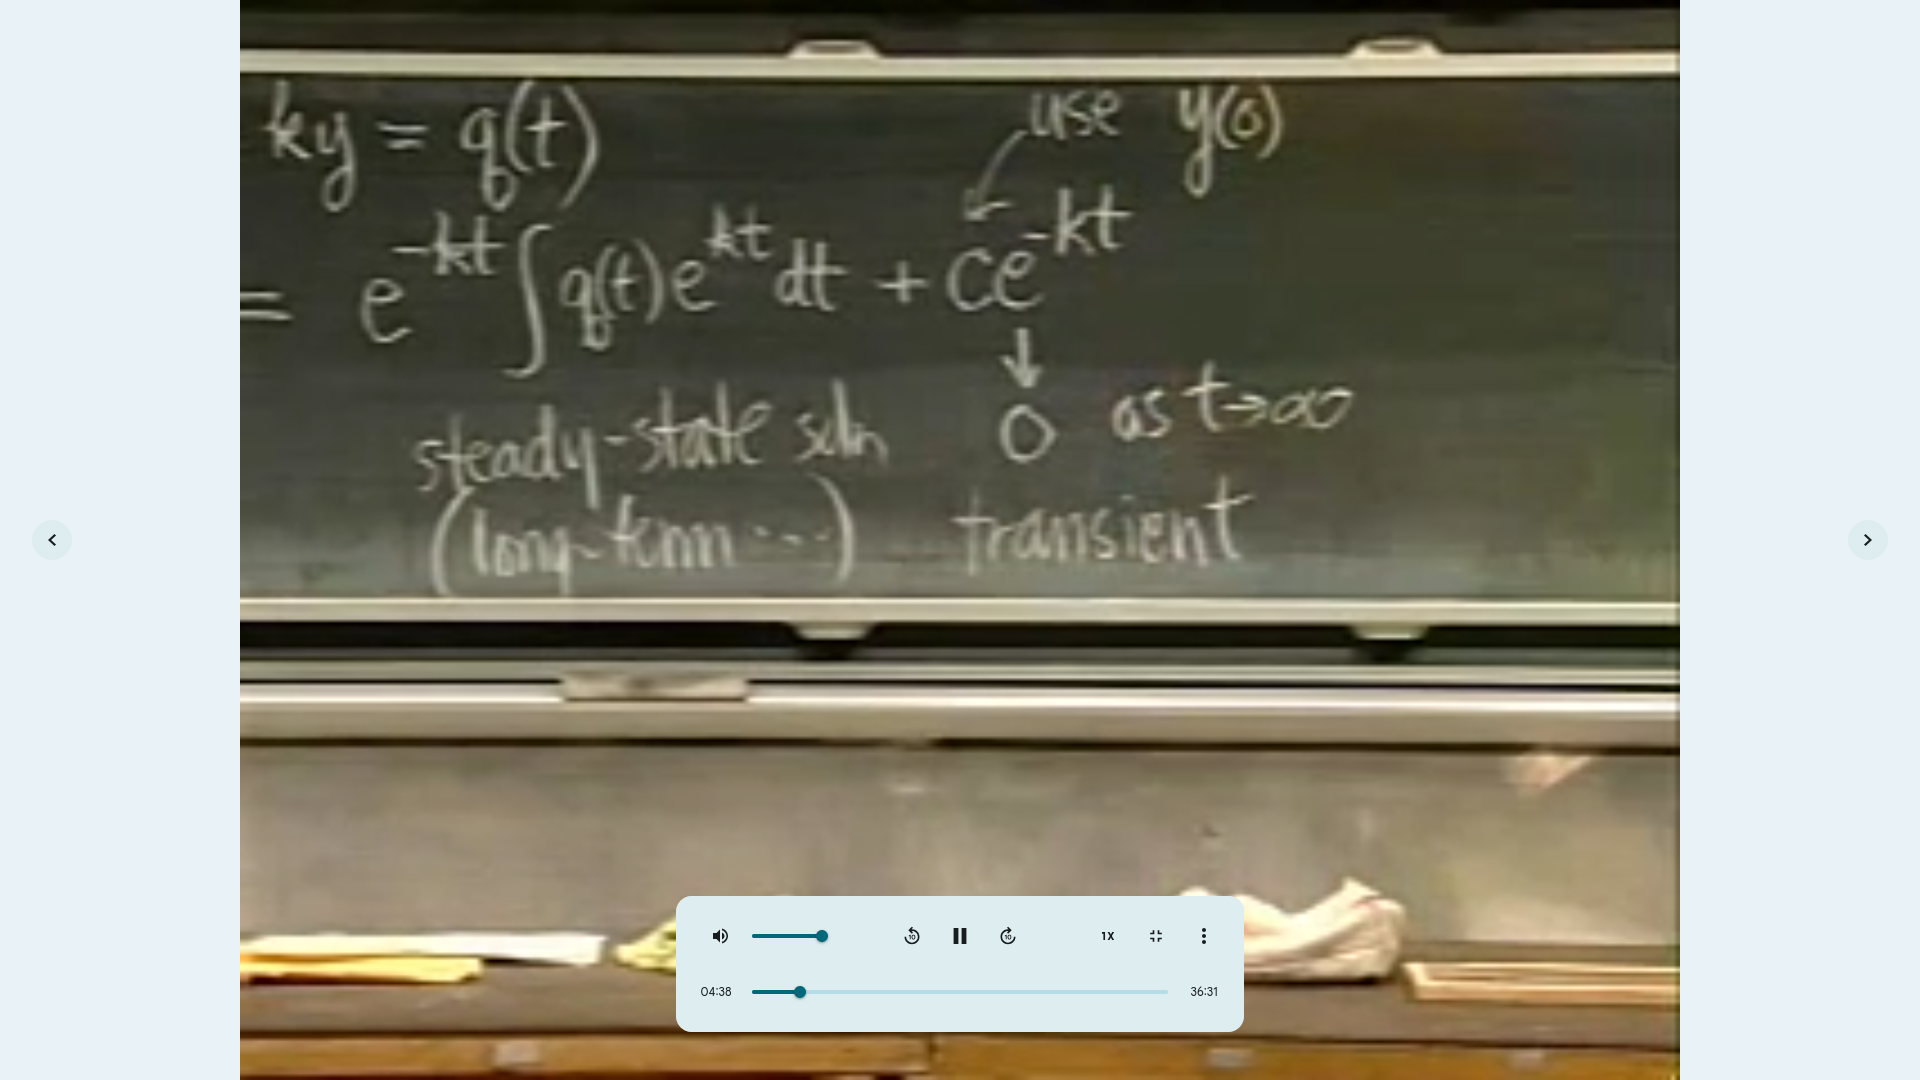 ky = q(t)
use y(0)
= e^{-kt} ∫ q(t) e^{kt} dt + Ce^{-kt}
↓
steady-state soln
0 as t→∞
(long-term ...)
transient
1X
04:38
36:31